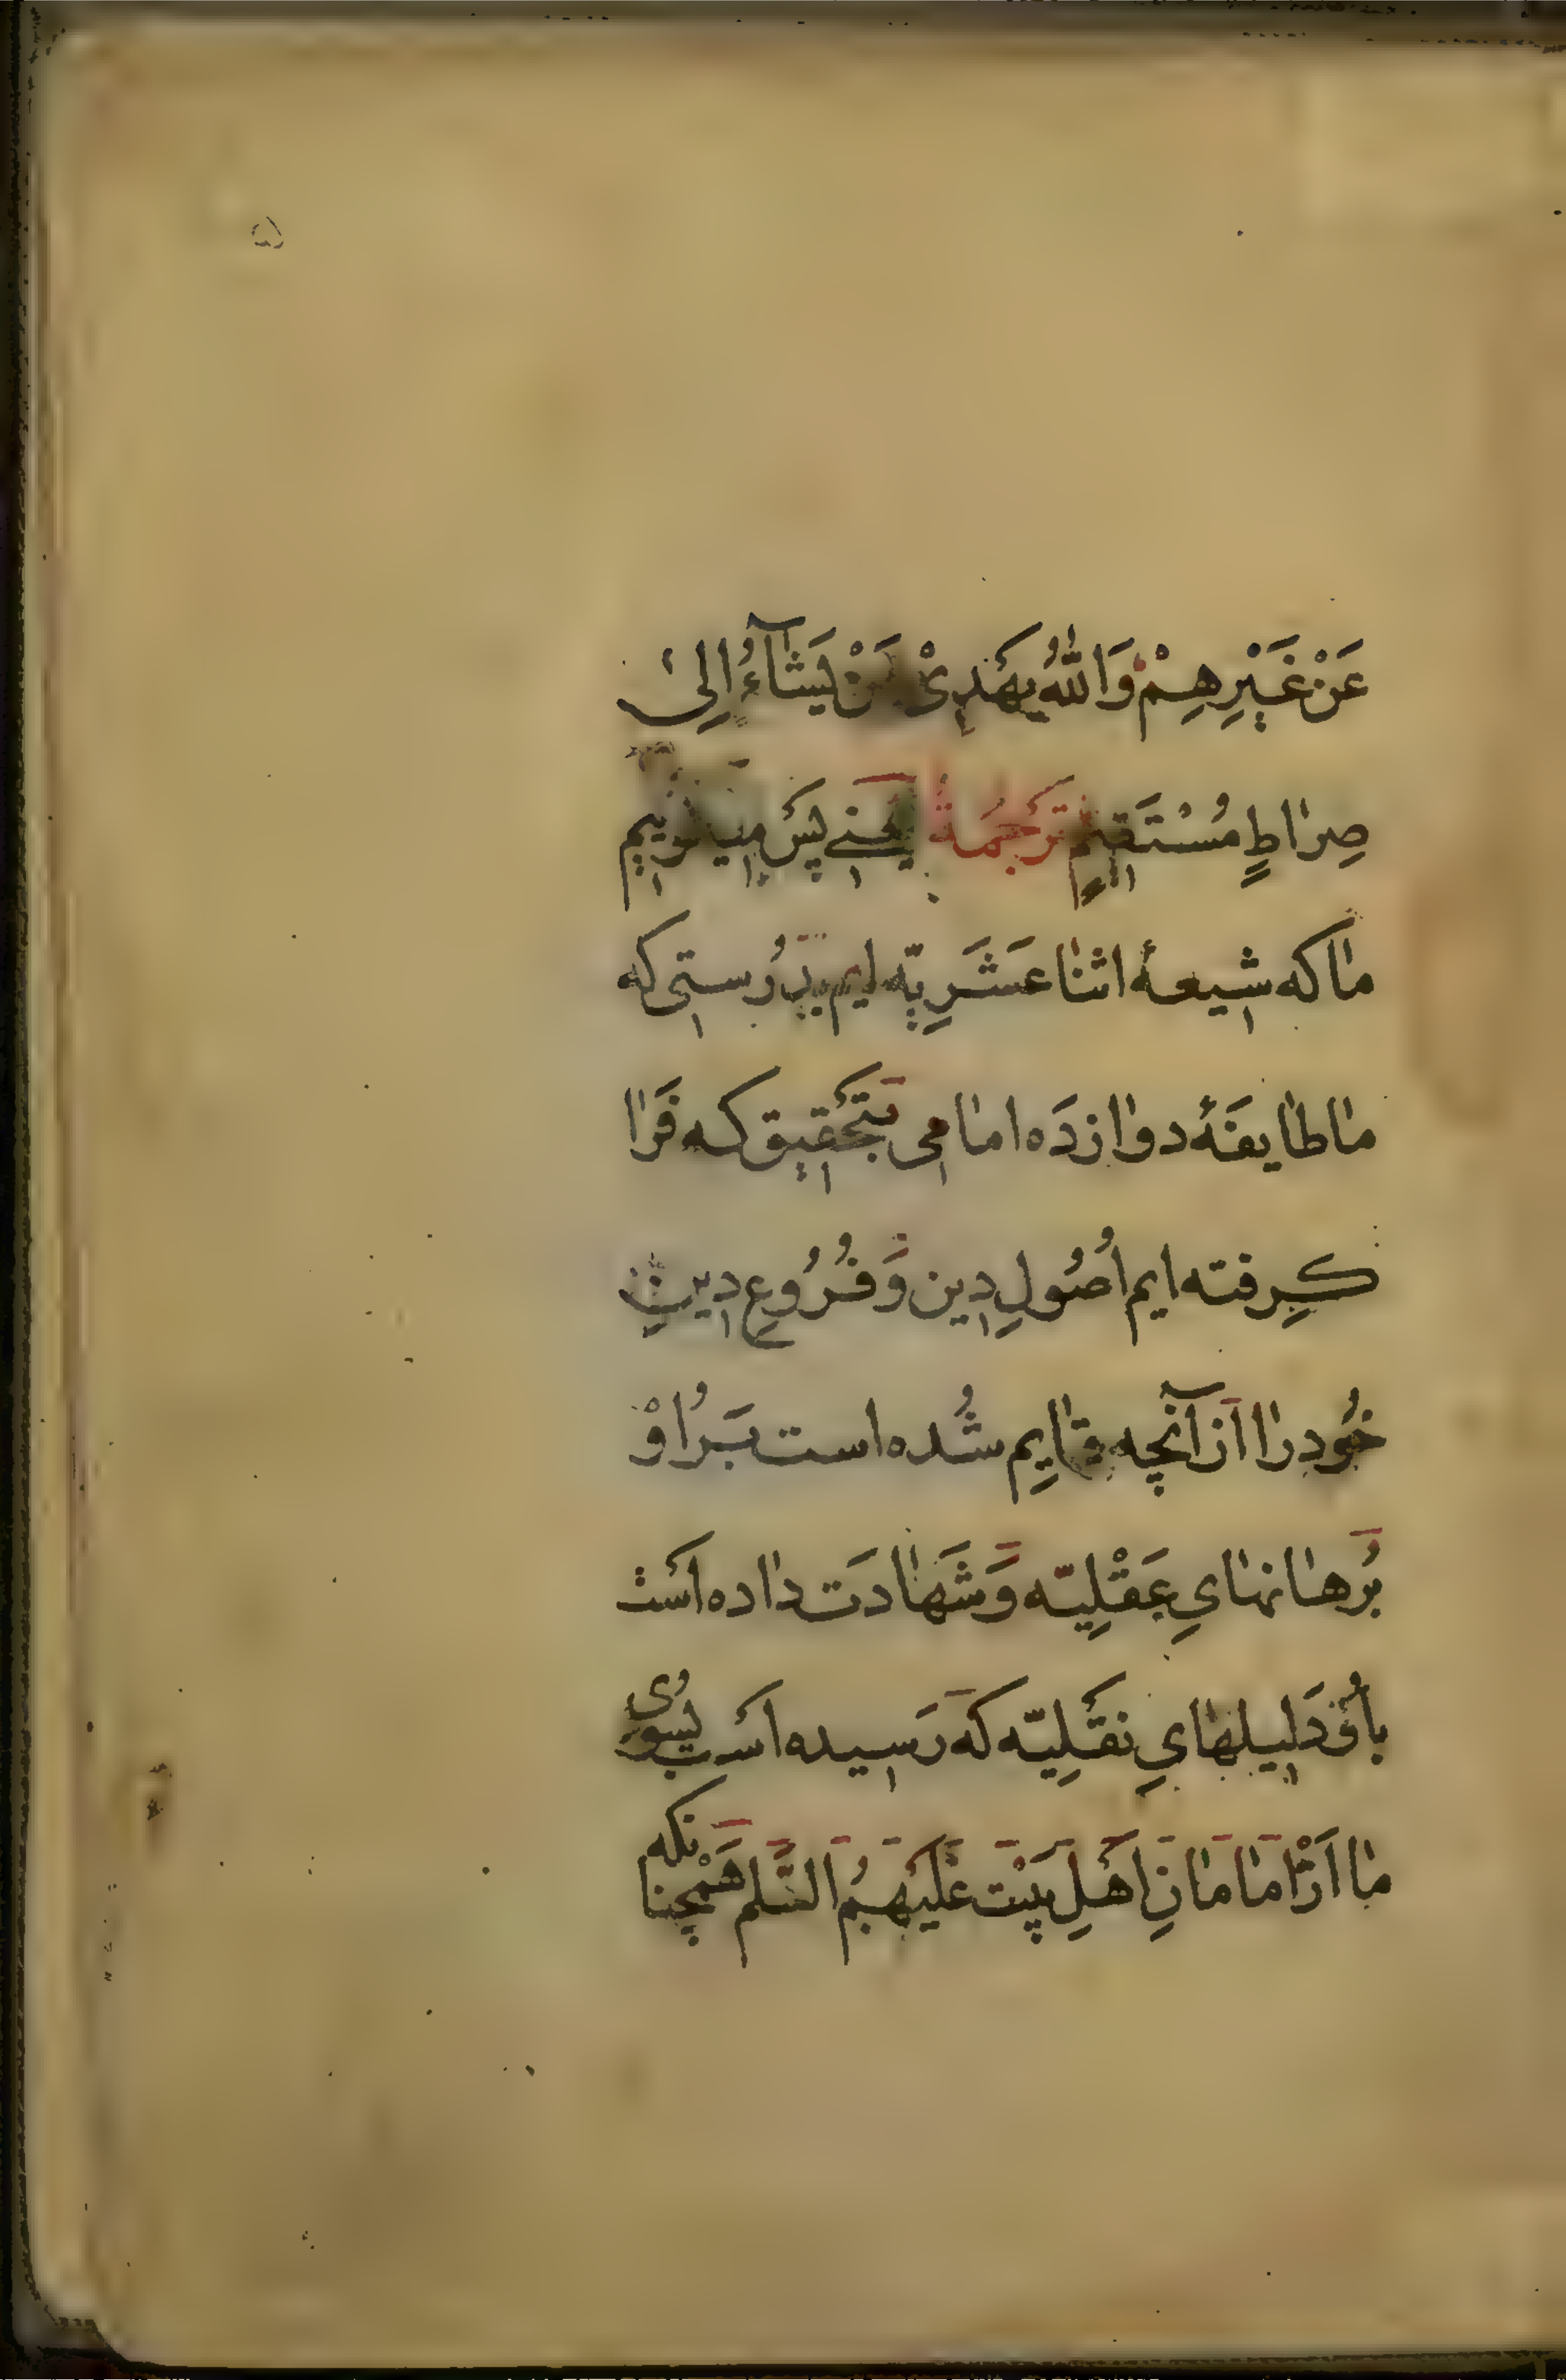 ۵
عَنْ غَيْرِهِمْ وَاللّٰهُ يَهْدِيْ مَنْ يَشَآءُ اِلىٰ
صِرَاطٍ مُسْتَقِيمٍ تَرجُمَهٔ يعنی پَس میگوییم
ما که شیعهٔ اثنا عَشَرِیّه ایم بدُرستی که
ما طایفَهٔ دوازدَه امامی بتَحقیق که فَرا
کِرفته ایم اُصُولِ دِین وَ فُرُوعِ دِینِ
خُود را اَز آنچه قایِم شُده است بَر اُوْ
بُرهانهایِ عَقْلِیّه وَ شَهادَت داده اَست
باُو دَلیلهایِ نَقلِیّه که رَسیده اَست بسُوی
ما اَزْ امامانِ اَهلِ بَیْت عَلَیهِمُ السَّلم هَمْچنانکه